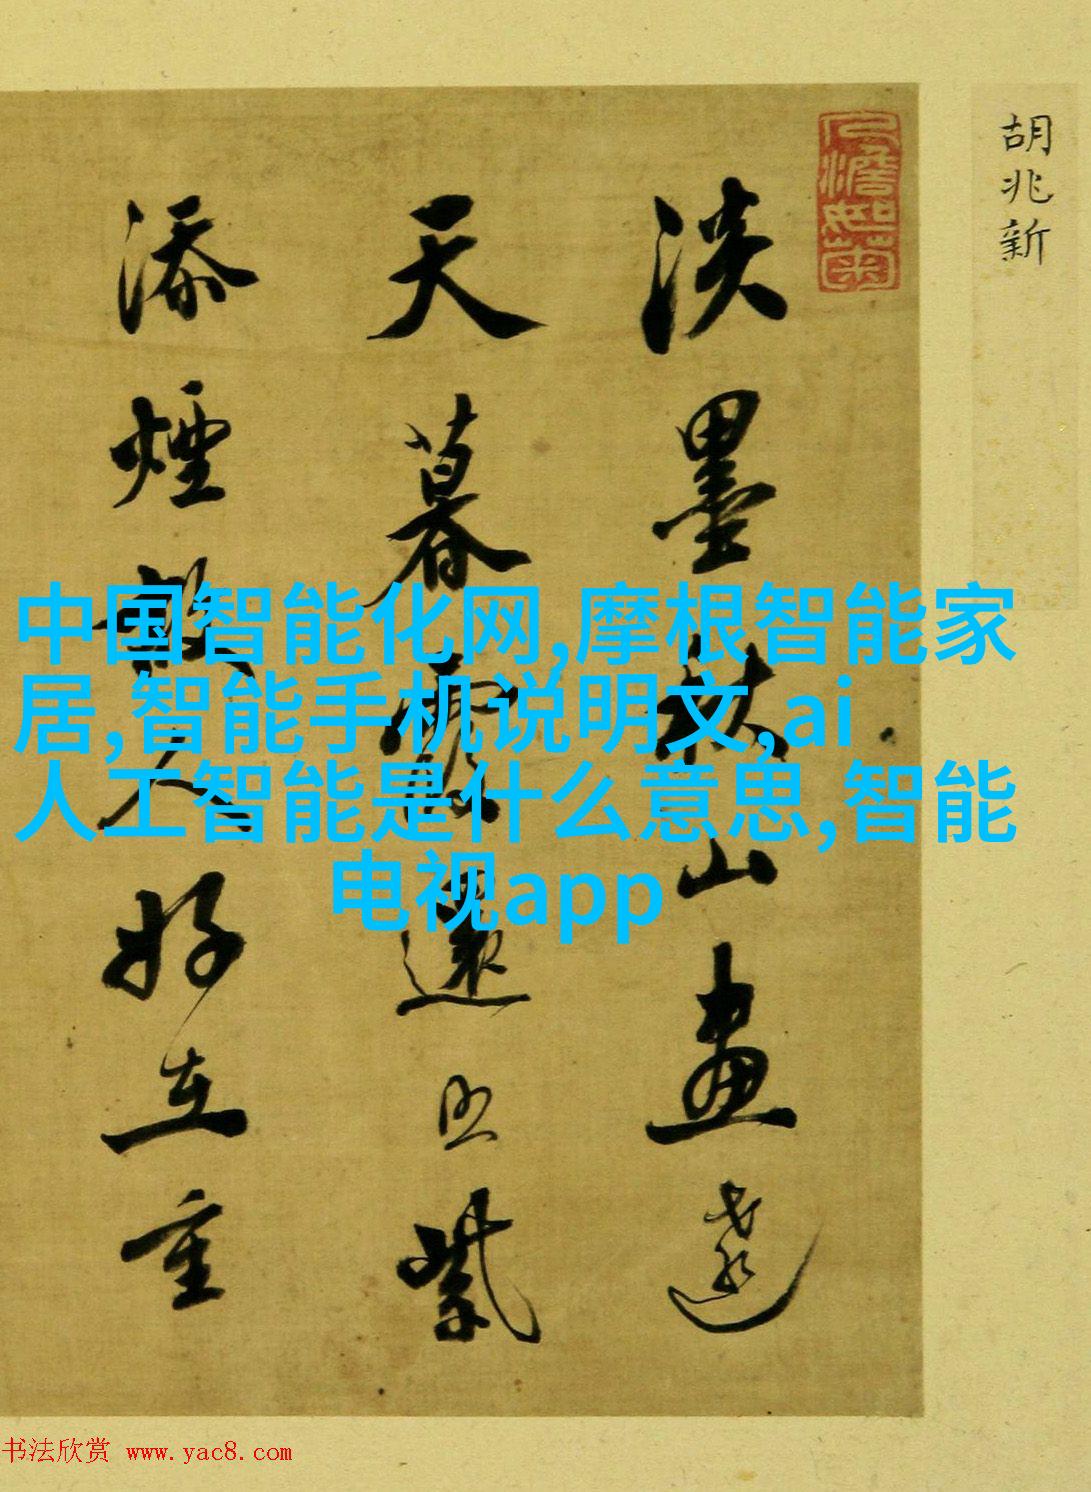 胡兆新
人澹如菊
淡墨秋山畫遠
天暮霞還照紫
添煙故人好在重
中国智能化网,摩根智能家
居,智能手机说明文,ai
人工智能是什么意思,智能
电视app
书法欣赏 www.yac8.com